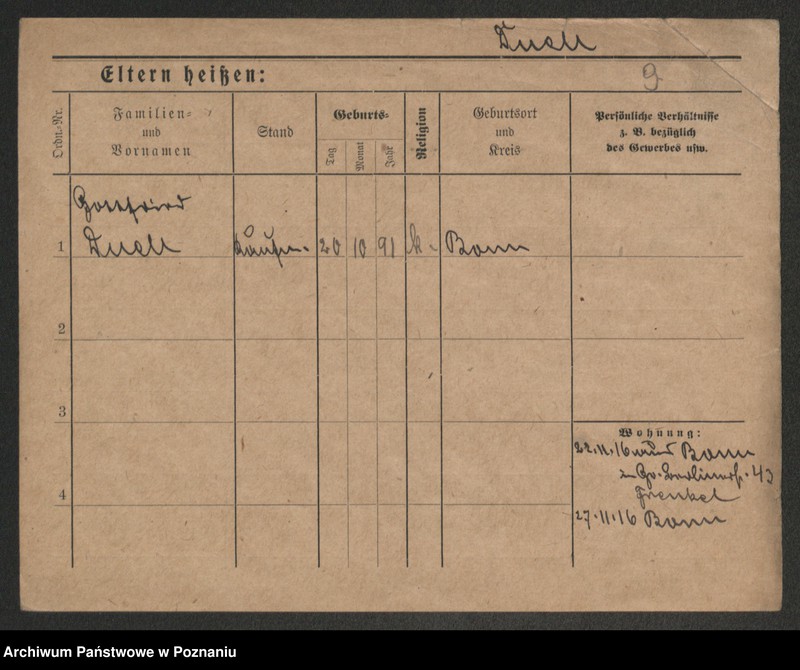 Duell
Eltern heißen:
9
Ordn.-Nr.
Familien-
und
Vornamen
Stand
Geburts-
Tag
Monat
Jahr
Religion
Geburtsort
und
Kreis
Persönliche Verhältnisse
z. B. bezüglich
des Gewerbes usw.
Gottfried
1 Duell Kaufm. 20 10 91 k. Bonn
2
3
Wohnung:
22.11.16 Bonn
43
4 Frenkel
27.11.16 Bonn
Archiwum Państwowe w Poznaniu